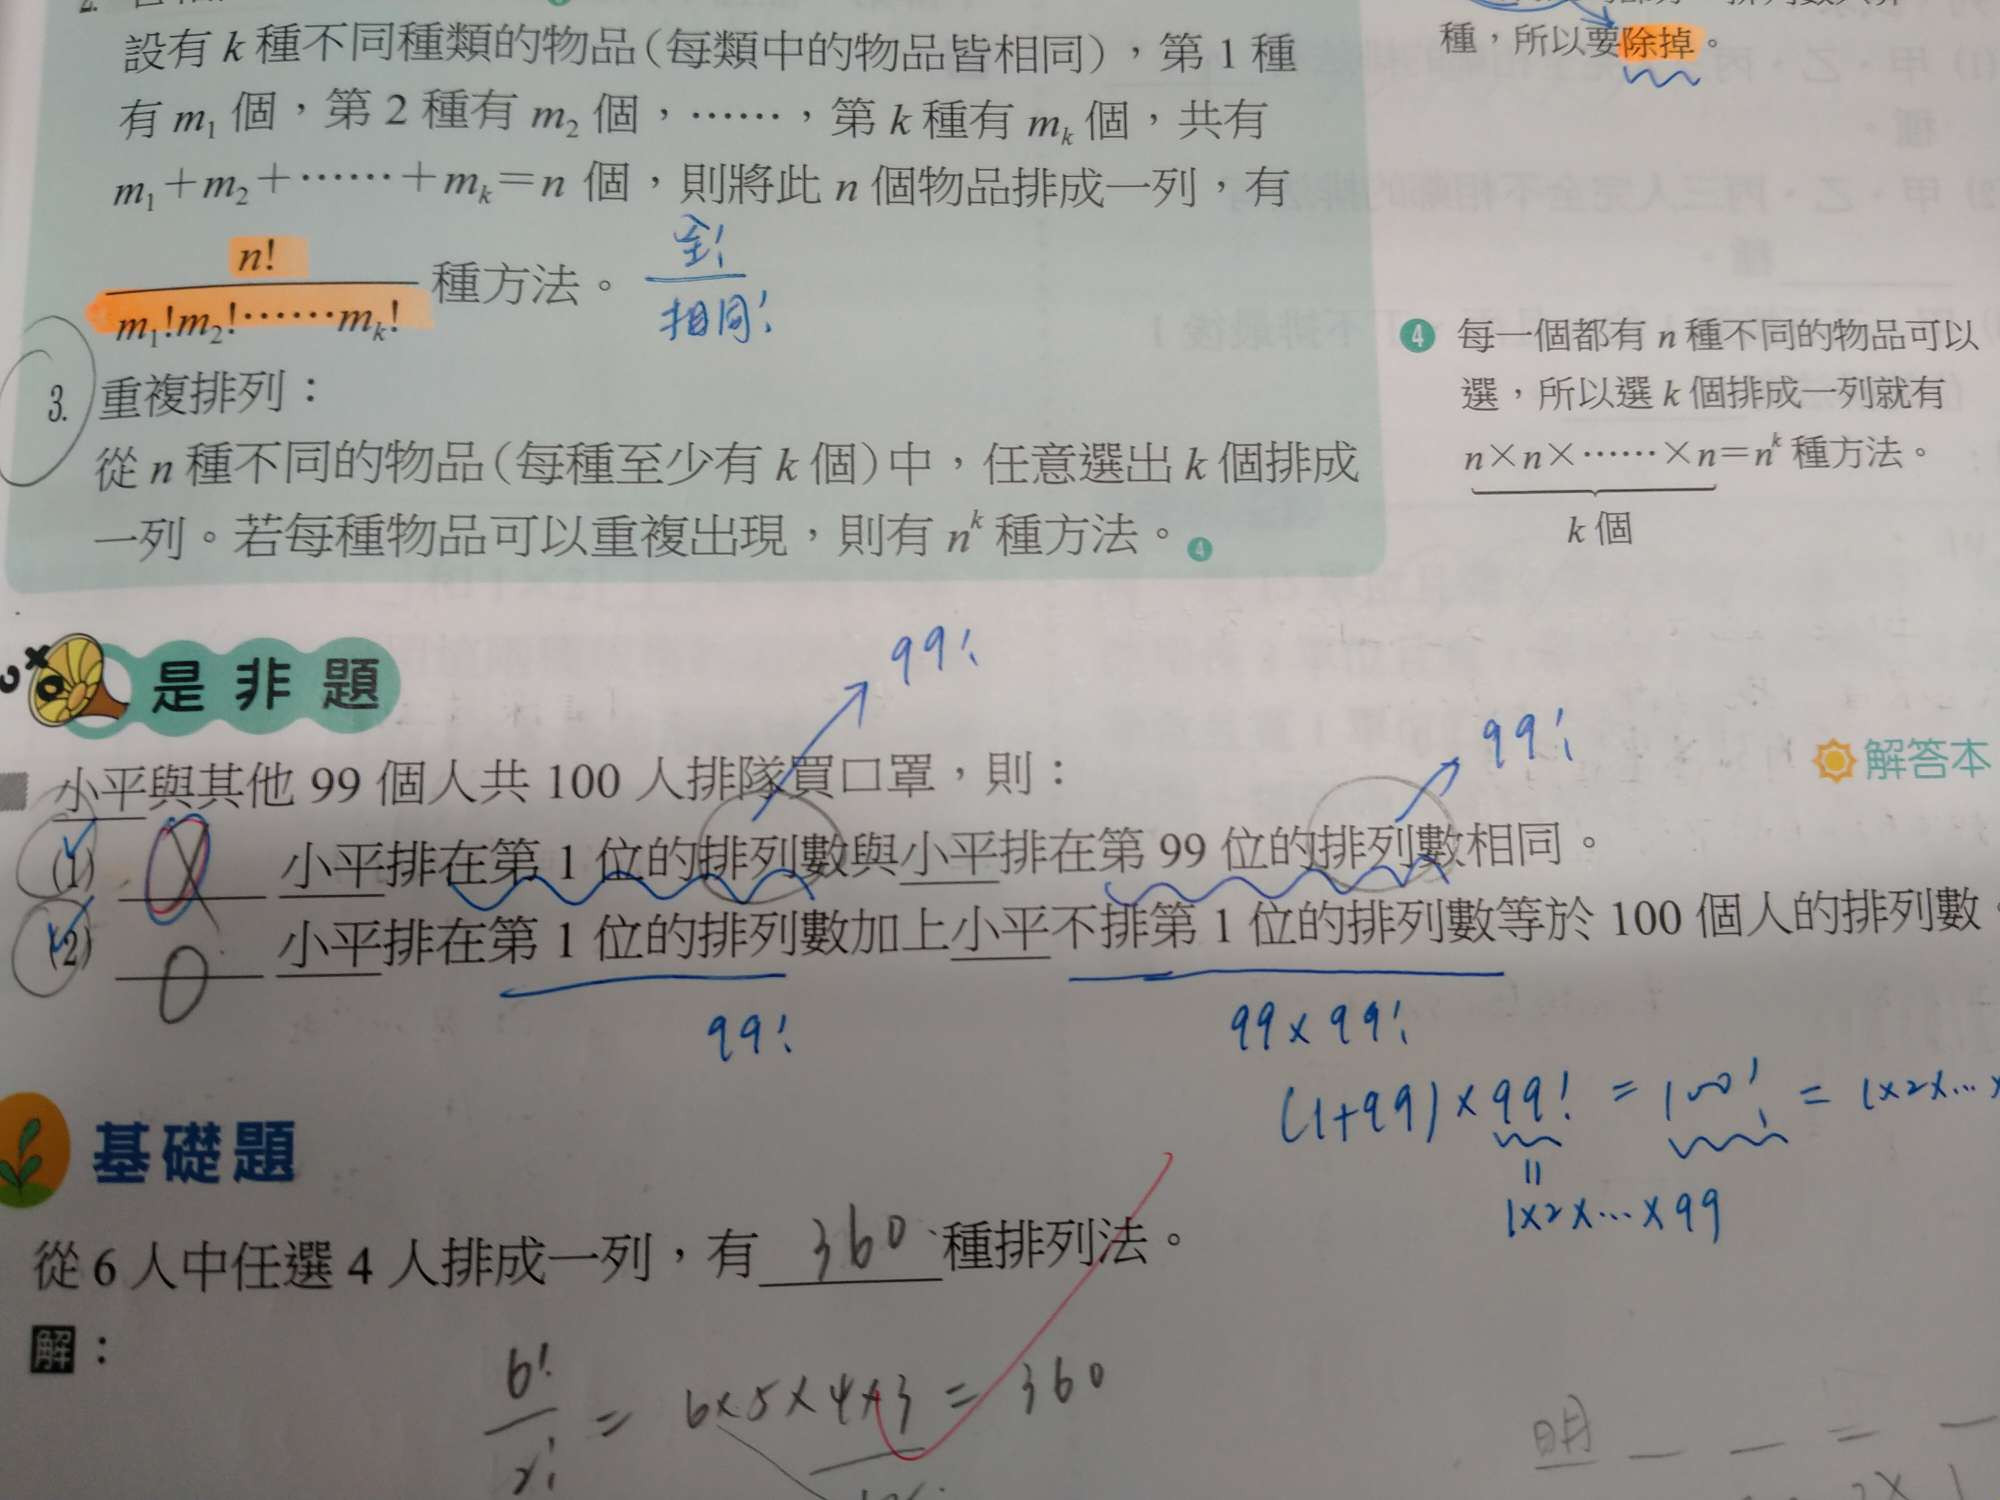 2.
設有 k 種不同種類的物品(每類中的物品皆相同),第 1 種
有 m₁ 個,第 2 種有 m₂ 個,……,第 k 種有 mₖ 個,共有
m₁+m₂+……+mₖ=n 個,則將此 n 個物品排成一列,有
n!
m₁!m₂!……mₖ!
種方法。
全!
相同!
3. 重複排列:
從 n 種不同的物品(每種至少有 k 個)中,任意選出 k 個排成
一列。若每種物品可以重複出現,則有 nᵏ 種方法。4
種,所以要除掉。
4 每一個都有 n 種不同的物品可以
選,所以選 k 個排成一列就有
n×n×……×n=nᵏ 種方法。
k 個
是非題
99!
99!
解答本
小平與其他 99 個人共 100 人排隊買口罩,則:
(1) 小平排在第 1 位的排列數與小平排在第 99 位的排列數相同。
(2) O 小平排在第 1 位的排列數加上小平不排第 1 位的排列數等於 100 個人的排列數。
99!
99×99!
(1+99)×99! = 100! = 1×2×…×
=
1×2×…×99
基礎題
從 6 人中任選 4 人排成一列,有 360 種排列法。
解:
6!
2!
= 6×5×4×3 = 360
明